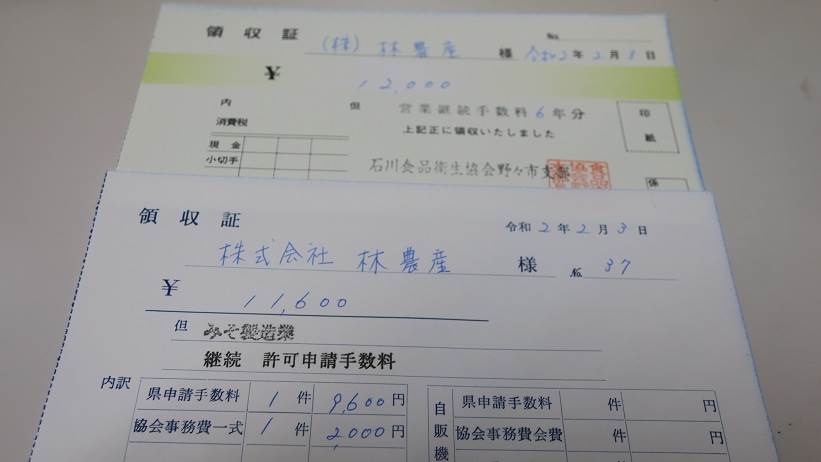 領収証
No.
(株) 林農産 様 令和2年2月3日
¥ 12,000
内 但 営業継続手数料6年分
消費税 上記正に領収いたしました
印紙
現金
小切手
石川食品衛生協会野々市支部
係
領収証
令和2年2月3日
株式会社 林農産 様 No. 37
¥ 11,600
但 みそ製造業
継続 許可申請手数料
内訳
県申請手数料 1件 9,600円
協会事務費一式 1件 2,000円
自販機
県申請手数料 件 円
協会事務費会費 件 円